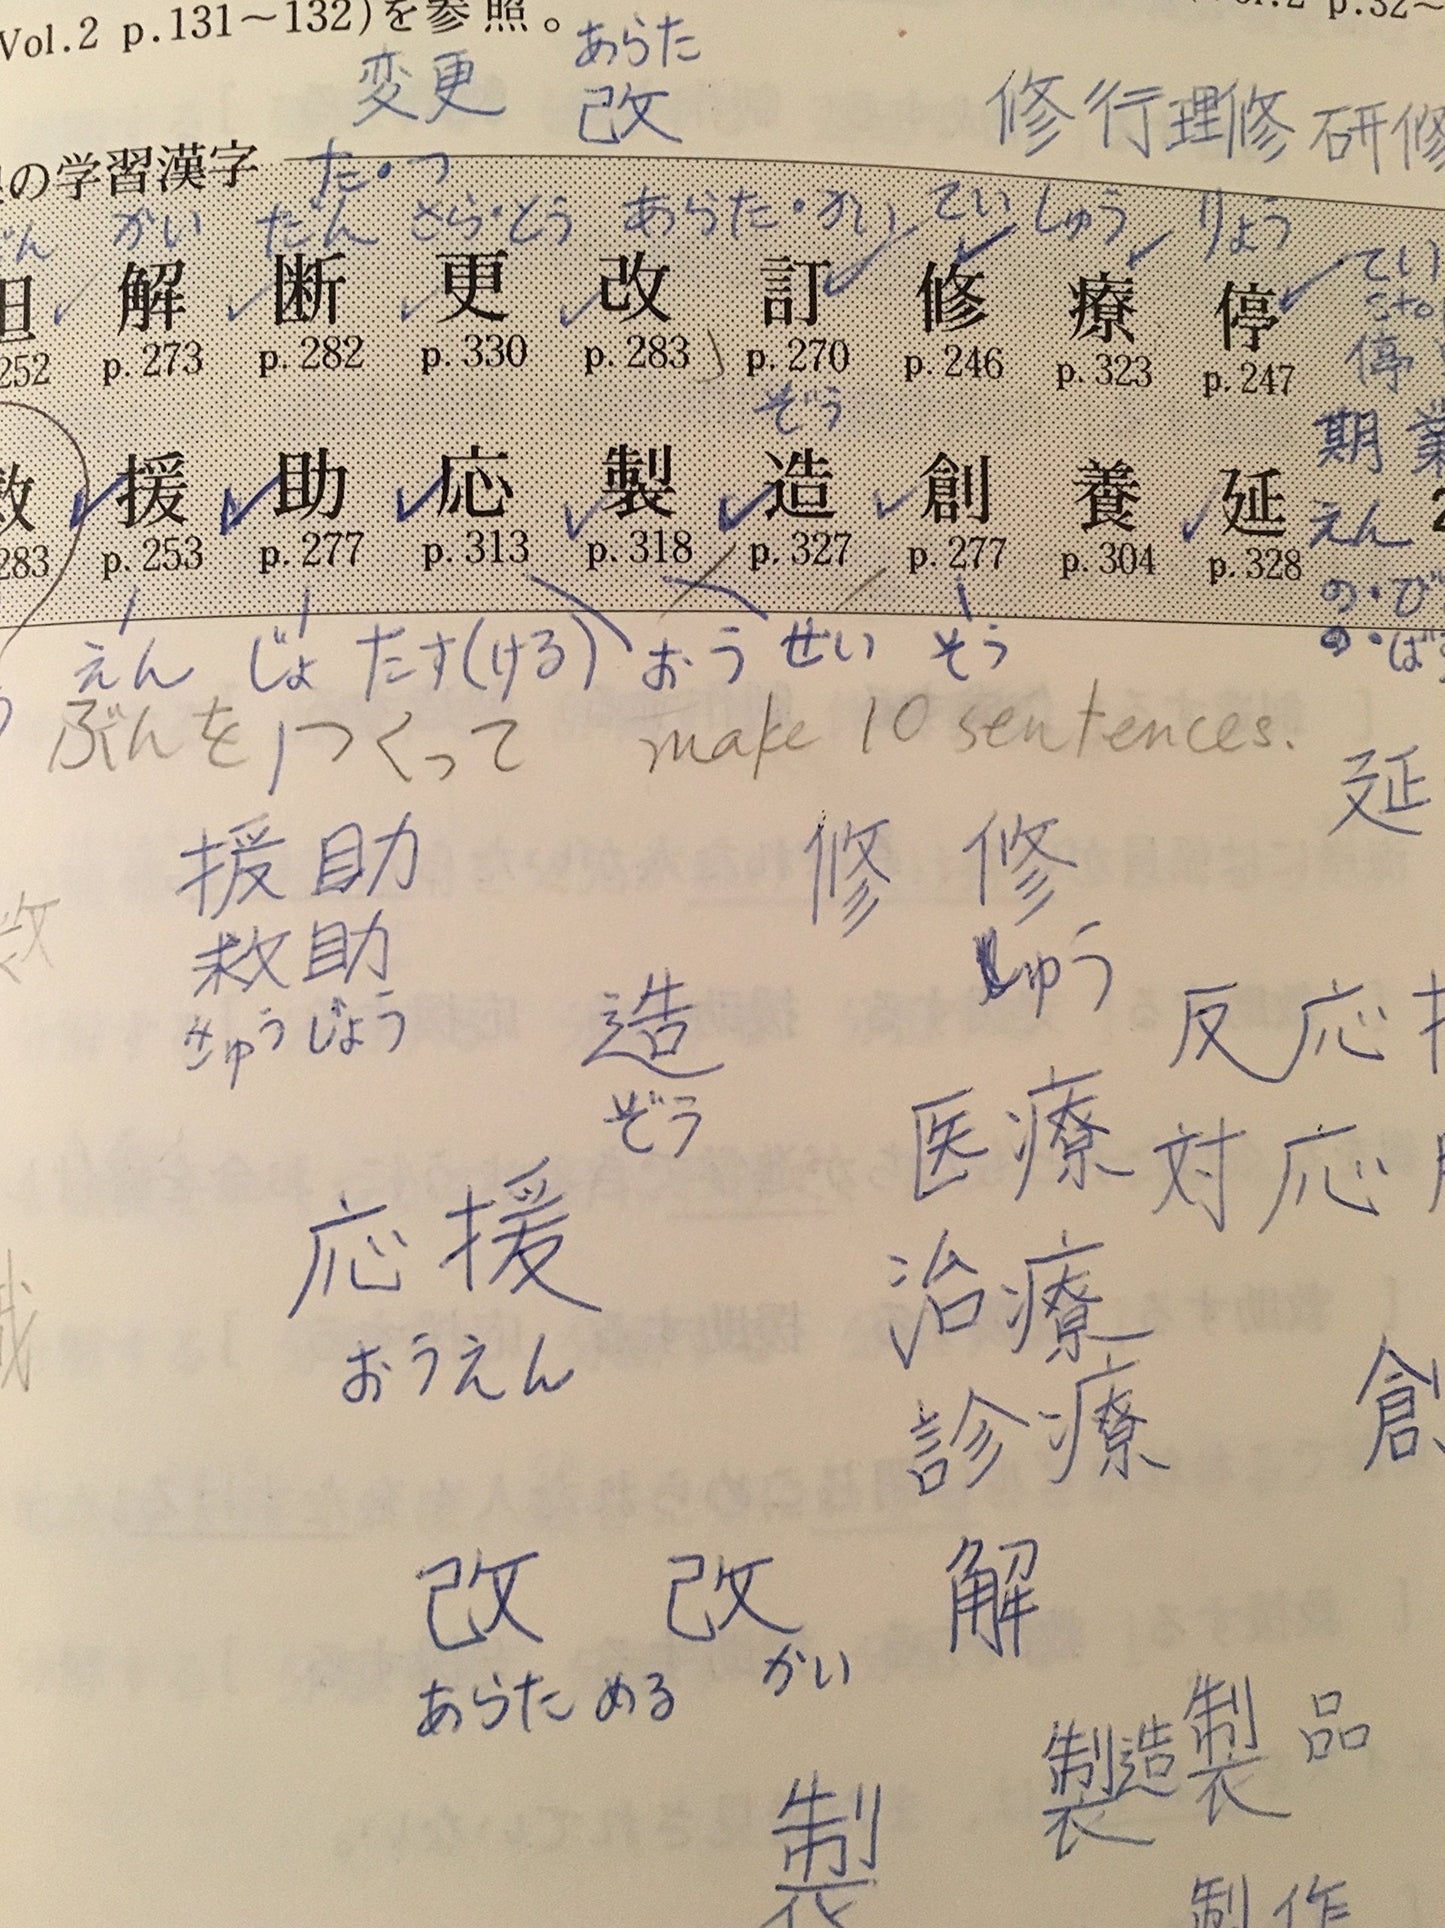 Vol.2 p.131～132)を参照。
変更
あらた
改
修行理修研修
の学習漢字
た・つ
かい だん さら・とう あらた・かい てい しゅう りょう てい
解 断 更 改 訂 修 療 停
252 p.273 p.282 p.330 p.283 p.270 p.246 p.323 p.247
停
ぞう
期業
救 援 助 応 製 造 創 養 延
えん
283 p.253 p.277 p.313 p.318 p.327 p.277 p.304 p.328
の・び
の・ば
えん じょ たす(ける) おう せい そう
ぶんをつくって make 10 sentences.
延
援助
修 修
しゅう
救助
きゅうじょう
造
ぞう
反応
医療
対応
応援
おうえん
治療
診療
創
改 改 解
あらためる かい
製造製品
製
制作